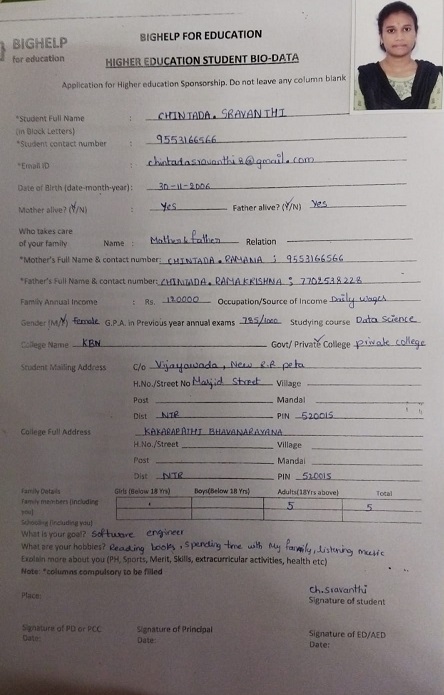 BIGHELP
for education
BIGHELP FOR EDUCATION
HIGHER EDUCATION STUDENT BIO-DATA
Application for Higher education Sponsorship. Do not leave any column blank
*Student Full Name : CHINTADA. SRAVANTHI
(in Block Letters)
*Student contact number : 9553166566
*Email ID : chintadasravanthi8@gmail.com
Date of Birth (date-month-year): 30-11-2006
Mother alive? (Y/N) : Yes Father alive? (Y/N) Yes
Who takes care
of your family Name : Mother & father Relation
*Mother's Full Name & contact number: CHINTADA. RAMANA ; 9553166566
*Father's Full Name & contact number: CHINTADA. RAMAKRISHNA ; 7702538228
Family Annual Income : Rs. 120000 Occupation/Source of Income Daily wages
Gender (M/F) female G.P.A. in Previous year annual exams 785/1000 Studying course Data Science
College Name KBN Govt/ Private College private college
Student Mailing Address C/o Vijayawada, New R.R peta
H.No./Street No Masjid Street Village
Post Mandal
Dist NTR PIN 520015
College Full Address KAKARAPATHI BHAVANARAYANA
H.No./Street Village
Post Mandal
Dist NTR PIN 520015
Family Details Girls (Below 18 Yrs) Boys(Below 18 Yrs) Adults(18Yrs above) Total
Family members (including you) 5 5
Schooling (including you)
What is your goal? Software engineer
What are your hobbies? Reading books, Spending time with My family, listening music
Explain more about you (PH, Sports, Merit, Skills, extracurricular activities, health etc)
Note: *columns compulsory to be filled
Ch.Sravanthi
Place: Signature of student
Signature of PD or PCC Signature of Principal Signature of ED/AED
Date: Date: Date: